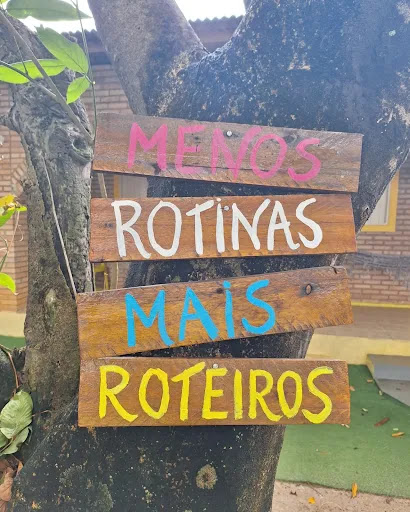 MENOS
ROTiNAS
MAiS
ROTEIROS